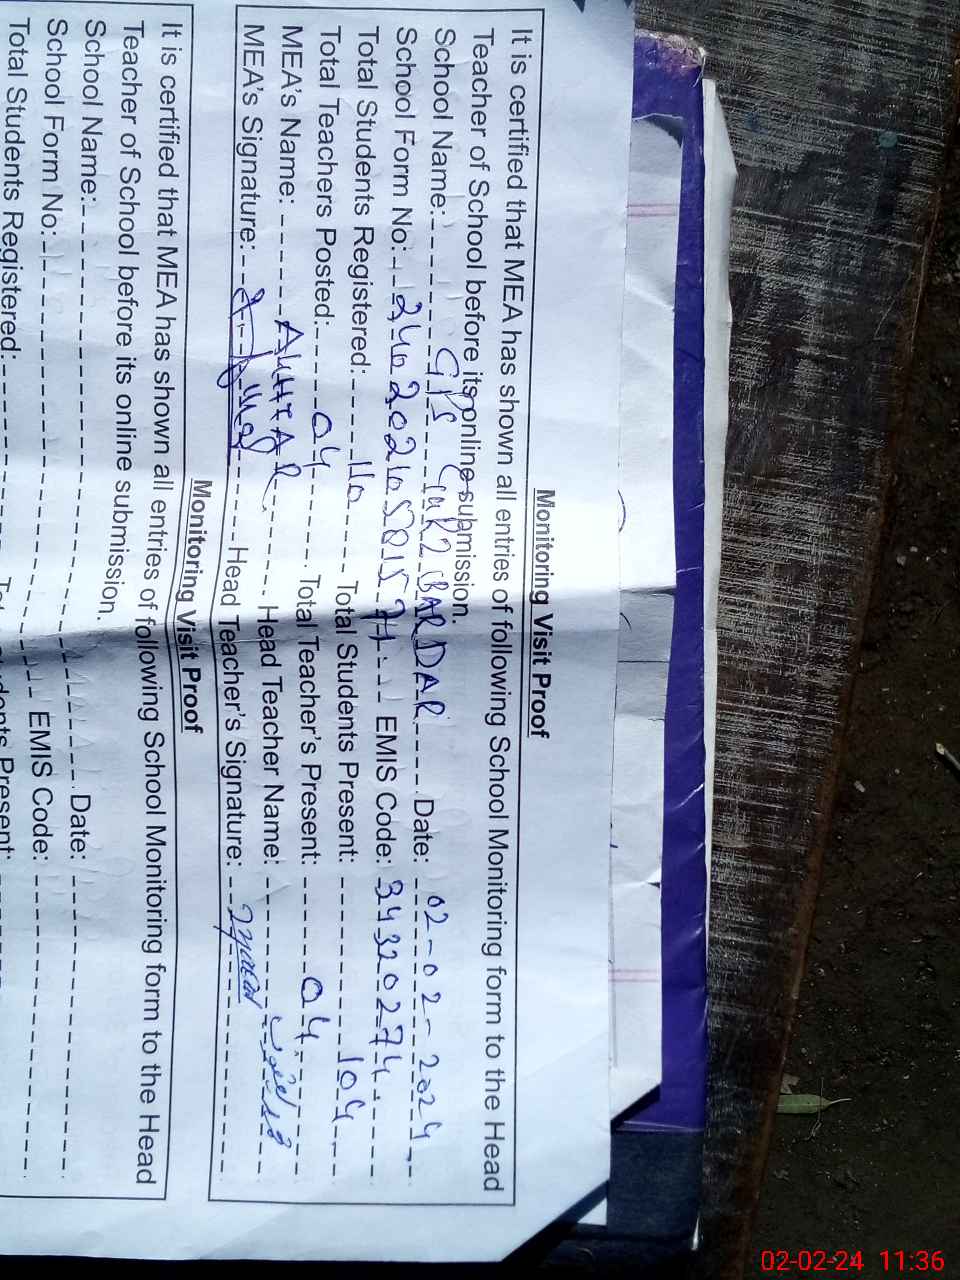 Monitoring Visit Proof
It is certified that MEA has shown all entries of following School Monitoring form to the Head
Teacher of School before its online submission.
School Name: GPS BARDAR Date: 02-02-2024
School Form No: EMIS Code: 34320274
Total Students Registered: 110 Total Students Present: 104
Total Teachers Posted: 04 Total Teacher's Present: 04
MEA's Name: AKHTAR Head Teacher Name:
MEA's Signature: Head Teacher's Signature:
Monitoring Visit Proof
It is certified that MEA has shown all entries of following School Monitoring form to the Head
Teacher of School before its online submission.
School Name: Date:
School Form No: EMIS Code:
Total Students Registered: Students Present:
02-02-24 11:36